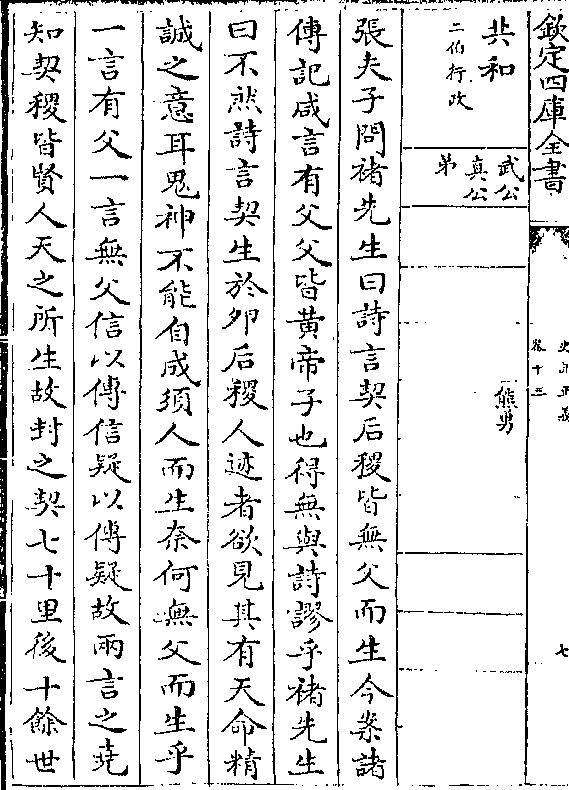 欽定四庫全書
史記正義
卷十三
七
共和
二伯行政
武公
真公
弟
熊勇
張夫子問褚先生曰詩言契后稷皆無父而生今案諸
傳記咸言有父父皆黃帝子也得無與詩謬乎褚先生
曰不然詩言契生於卵后稷人迹者欲見其有天命精
誠之意耳鬼神不能自成須人而生奈何無父而生乎
一言有父一言無父信以傳信疑以傳疑故兩言之堯
知契稷皆賢人天之所生故封之契七十里後十餘世